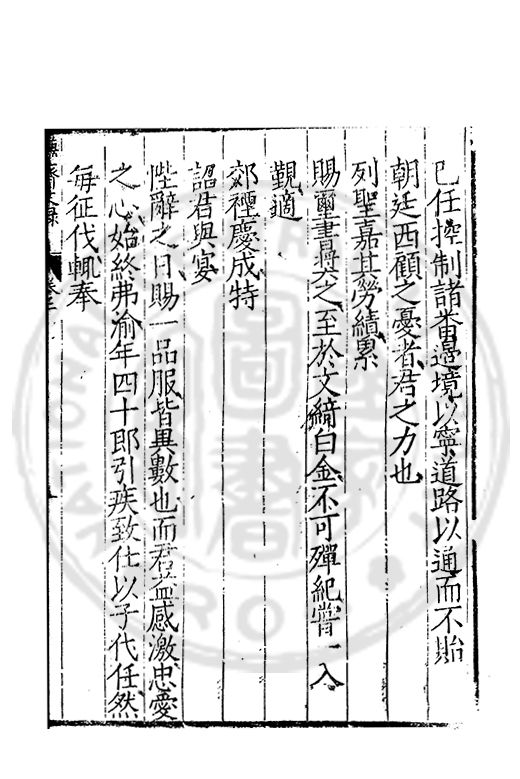 已任控制諸番邊境以寧道路以通而不貽
朝廷西顧之憂者君之力也
列聖嘉其勞績累
賜璽書奬之至於文綺白金不可殫紀嘗一入
覲適
郊禋慶成特
詔君與宴
陛辭之日賜一品服皆異數也而君益感激忠愛
之心始終弗渝年四十郎引疾致仕以子代任然
毎征伐輒奉